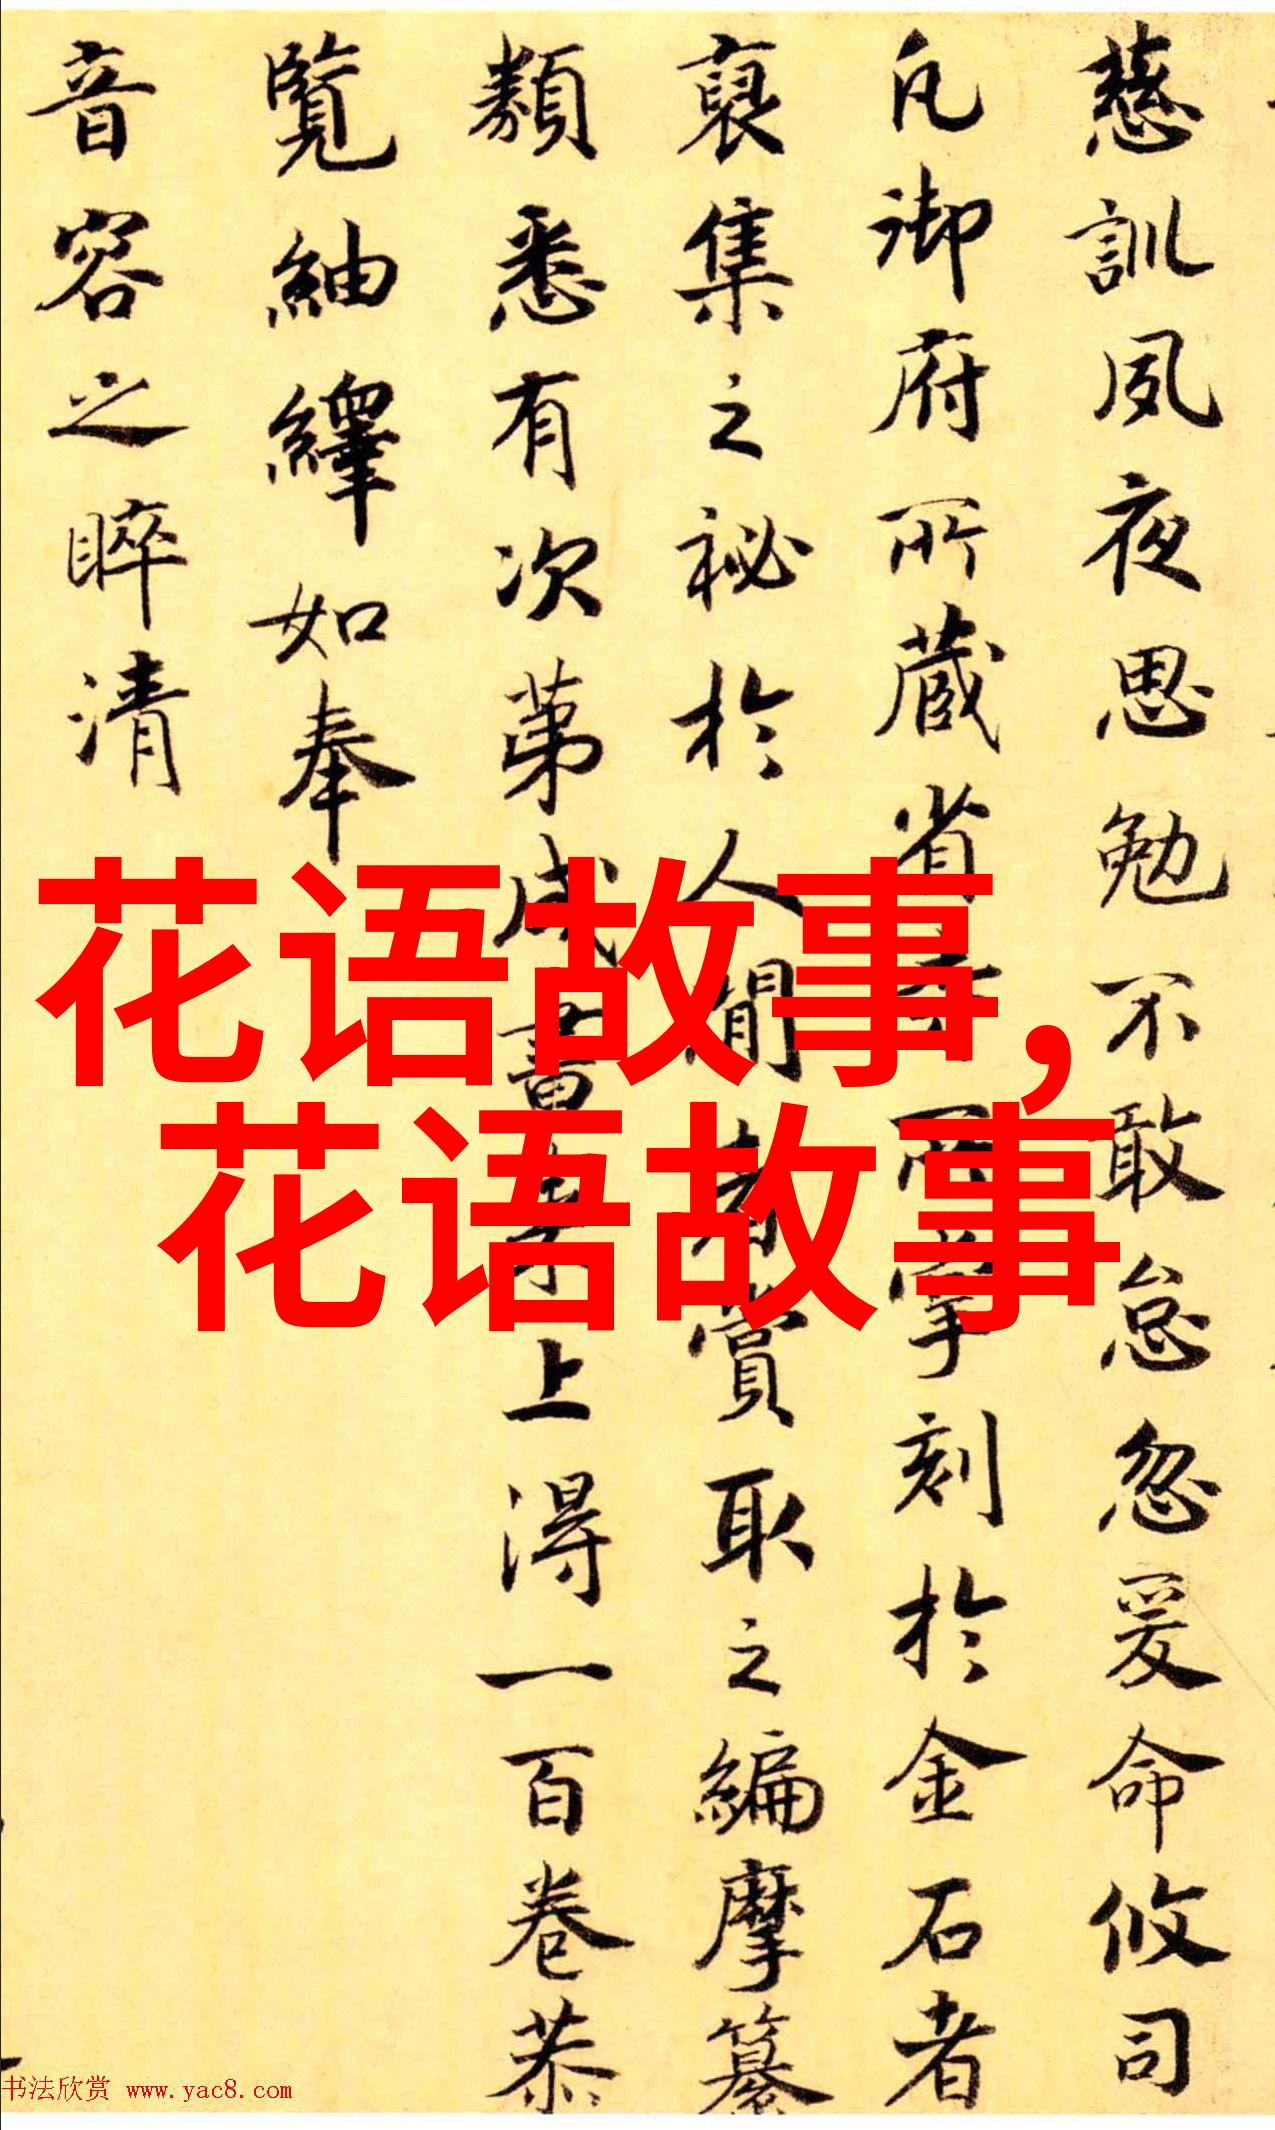 慈訓夙夜思勉不敢怠忽爰命攸司
凡御府所藏省 所掌刻於金石者
裒集之祕於人間者賞取之編摩纂
類悉有次第成書來上得一百卷恭
覽紬繹如奉
音容之睟清
花语故事,
花语故事
书法欣赏 www.yac8.com